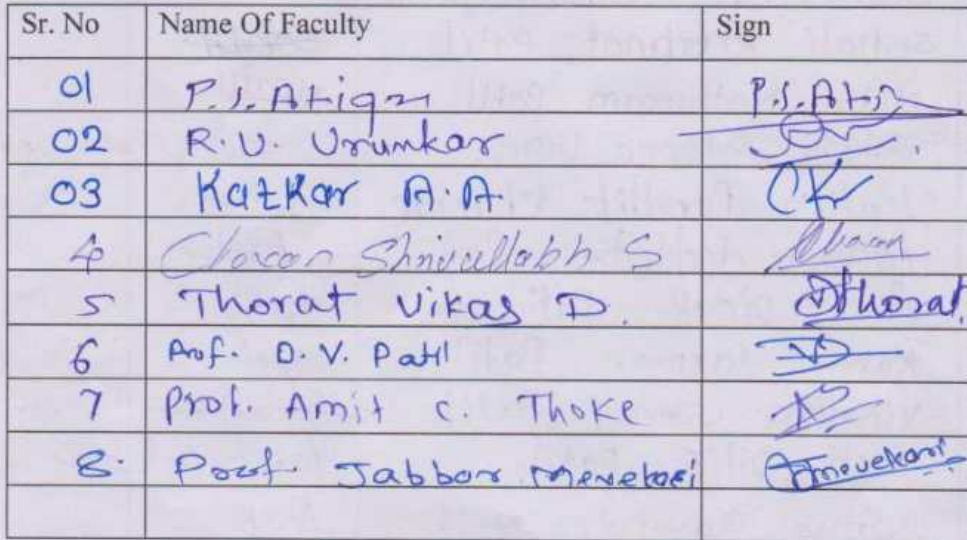 Sr. No Name Of Faculty Sign
01 P.S. Atiqu P.S. Ati
02 R.U. Urunkar
03 Katkar A.A. CK
4 Chavan Shrivallabh S Chavan
5 Thorat Vikas D. Thorat
6 Prof. D.V. Patil
7 Prof. Amit C. Thoke
8. Prof. Jabbar Menekari Jmenekari